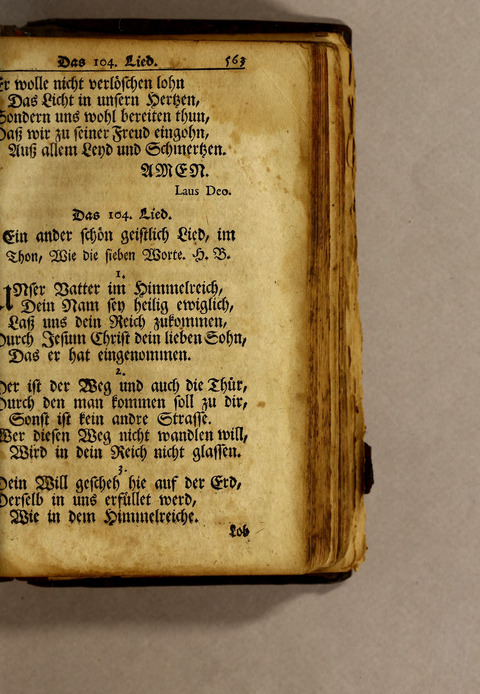 Das 104. Lied. 563
Er wolle nicht verlöschen lohn
Das Licht in unsern Hertzen,
Sondern uns wohl bereiten thun,
Daß wir zu seiner Freud eingohn,
Auß allem Leyd und Schmertzen.
AMEN.
Laus Deo.
Das 104. Lied.
Ein ander schön geistlich Lied, im
Thon, Wie die sieben Worte. H. B.
1.
UNser Vatter im Himmelreich,
Dein Nam sey heilig ewiglich,
Laß uns dein Reich zukommen,
Durch Jesum Christ dein lieben Sohn,
Das er hat eingenommen.
2.
Der ist der Weg und auch die Thür,
Durch den man kommen soll zu dir,
Sonst ist kein andre Strasse.
Wer diesen Weg nicht wandlen will,
Wird in dein Reich nicht glassen.
3.
Dein Will gescheh hie auf der Erd,
Derselb in uns erfüllet werd,
Wie in dem Himmelreiche.
Lob